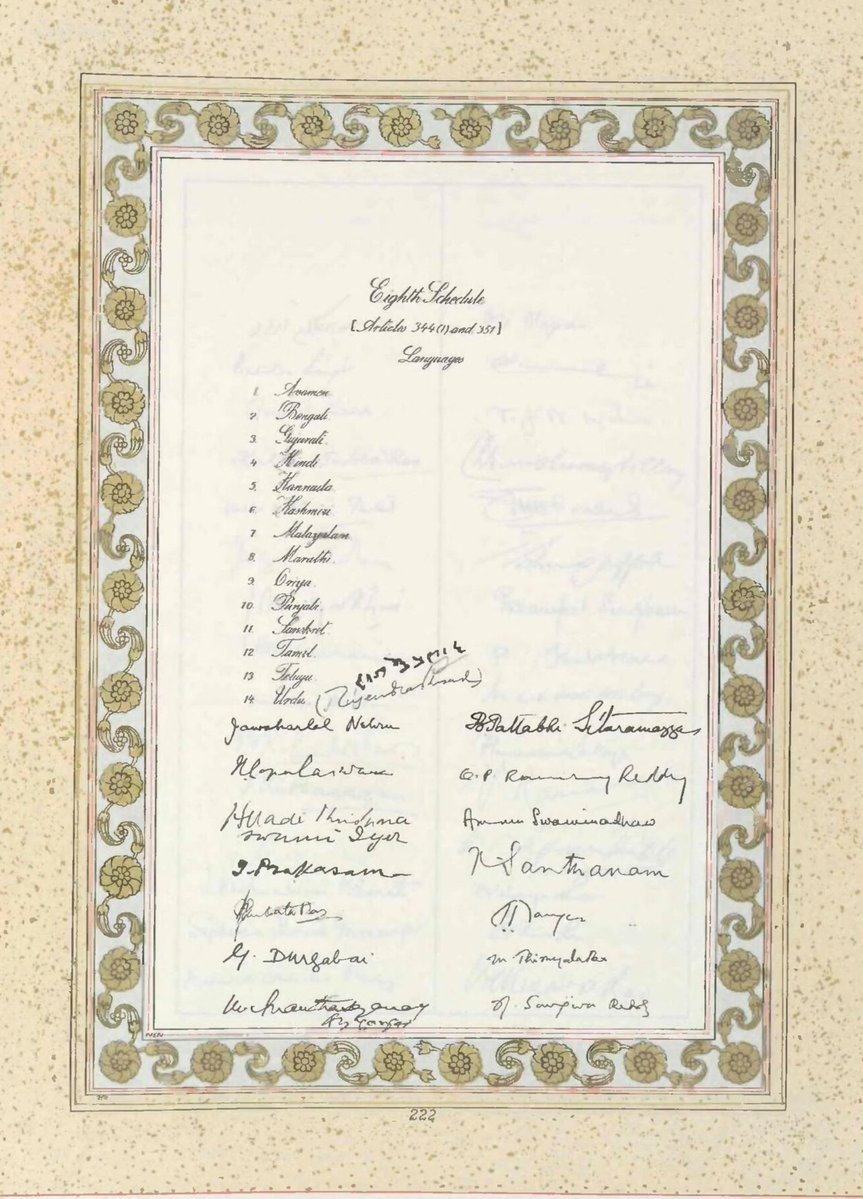 Eighth Schedule
[Articles 344(1) and 351]
Languages
1. Assamese.
2. Bengali.
3. Gujarati.
4. Hindi.
5. Kannada.
6. Kashmiri.
7. Malayalam.
8. Marathi.
9. Oriya.
10. Punjabi.
11. Sanskrit.
12. Tamil.
13. Telugu.
14. Urdu.
राजेन्द्र प्रसाद
(Rajendra Prasad)
Jawaharlal Nehru
B Pattabhi Sitaramayya
O. P. Ramaswamy Reddy
Ammu Swaminadhan
Alladi Krishna
swami Iyer
T. Prakasam
K Santhanam
G. Durgabai
M Thirumala Rao
N. Sanjiva Reddy
222